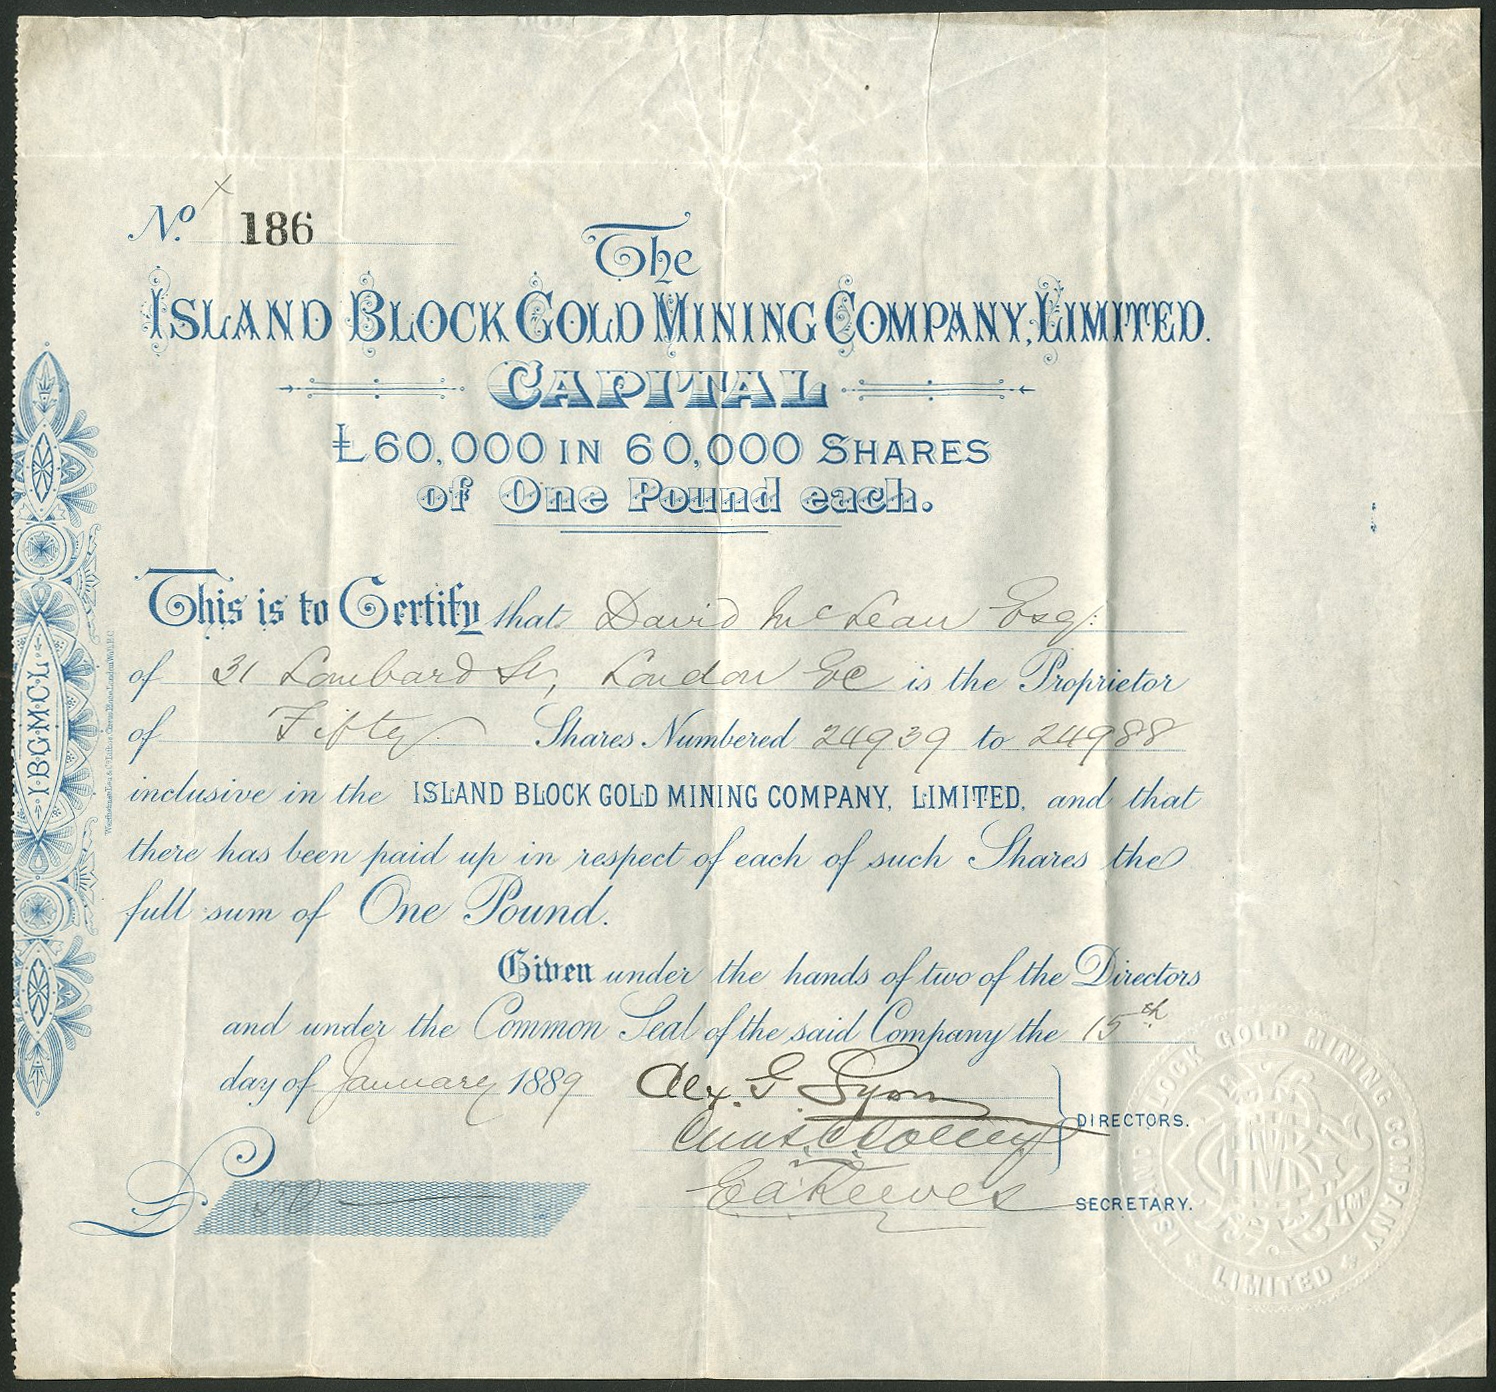 No. 186
The
ISLAND BLOCK GOLD MINING COMPANY, LIMITED.
CAPITAL
£60,000 IN 60,000 SHARES
of One Pound each.
This is to Certify that David McLean Esq:
of 31 Lombard St, London EC is the Proprietor
of Fifty Shares Numbered 24939 to 24988
inclusive in the ISLAND BLOCK GOLD MINING COMPANY, LIMITED, and that
there has been paid up in respect of each of such Shares the
full sum of One Pound.
Given under the hands of two of the Directors
and under the Common Seal of the said Company the 15th
day of January 1889 Alex. G.
DIRECTORS.
£ 50
SECRETARY.
I.B.G.M.C.L.
ISLAND BLOCK GOLD MINING COMPANY
LIMITED